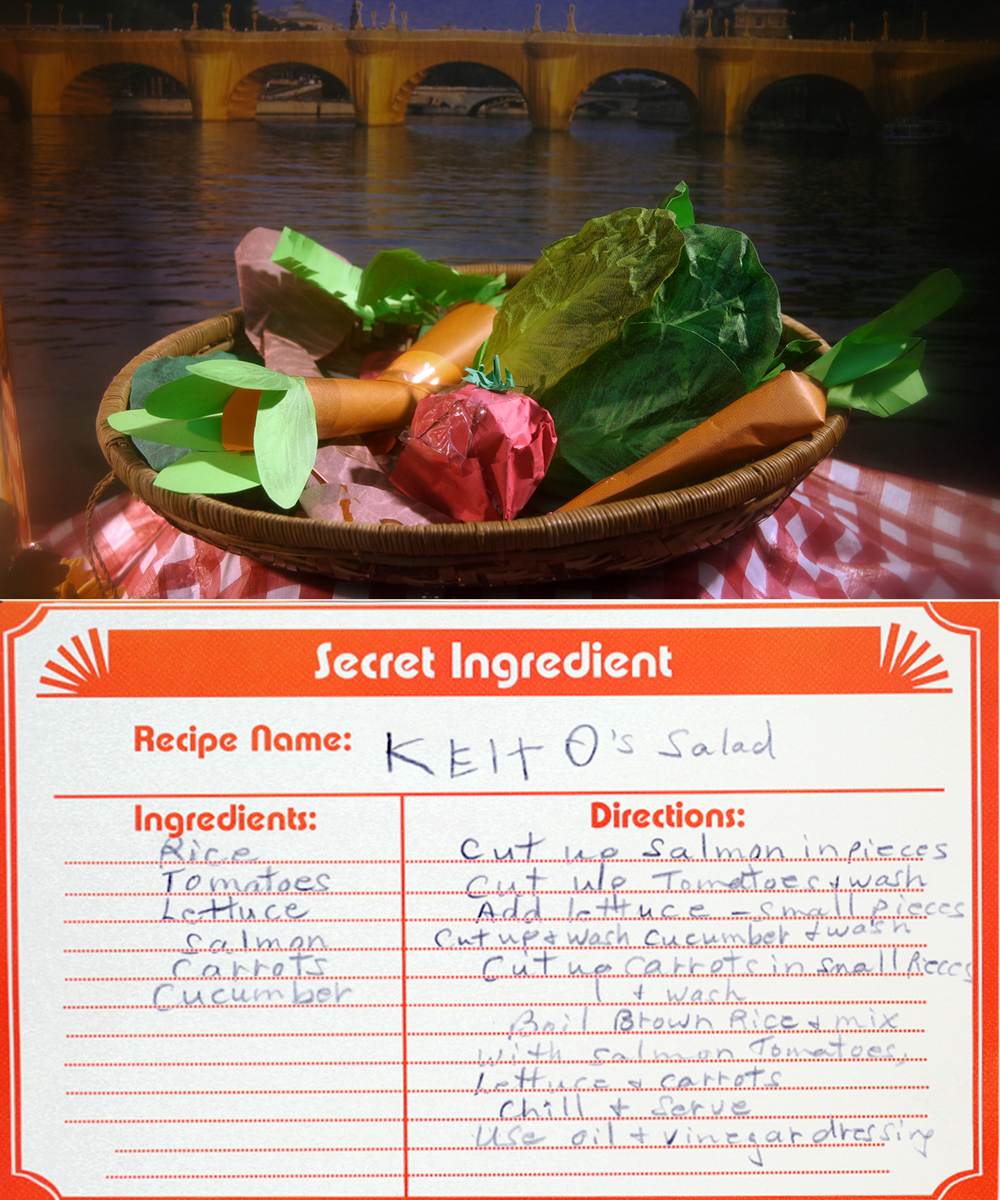 Secret Ingredient
Recipe Name: KEIt O's Salad
Ingredients:
Rice
Tomatoes
Lettuce
Salmon
Carrots
Cucumber
Directions:
Cut up Salmon in pieces
Cut up Tomatoes & wash
Add lettuce - small pieces
Cut up & wash Cucumber & wash
Cut up carrots in small Pieces
& wash
Boil Brown Rice & mix
with salmon Tomatoes,
Lettuce & carrots
Chill & Serve
Use oil & vinegar dressing